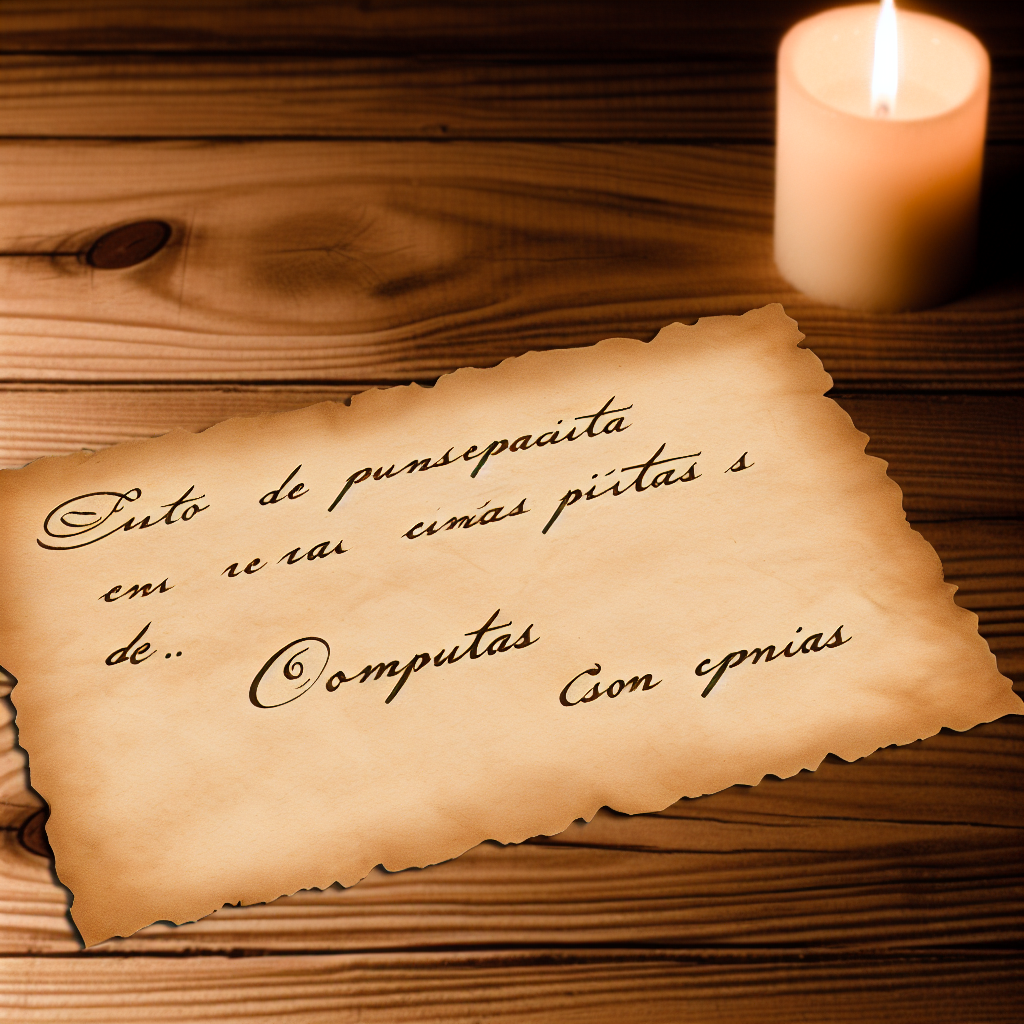 Futo de punsepaciita
enr re rar cimías piítas s
de.. Computas
Cson cpnias